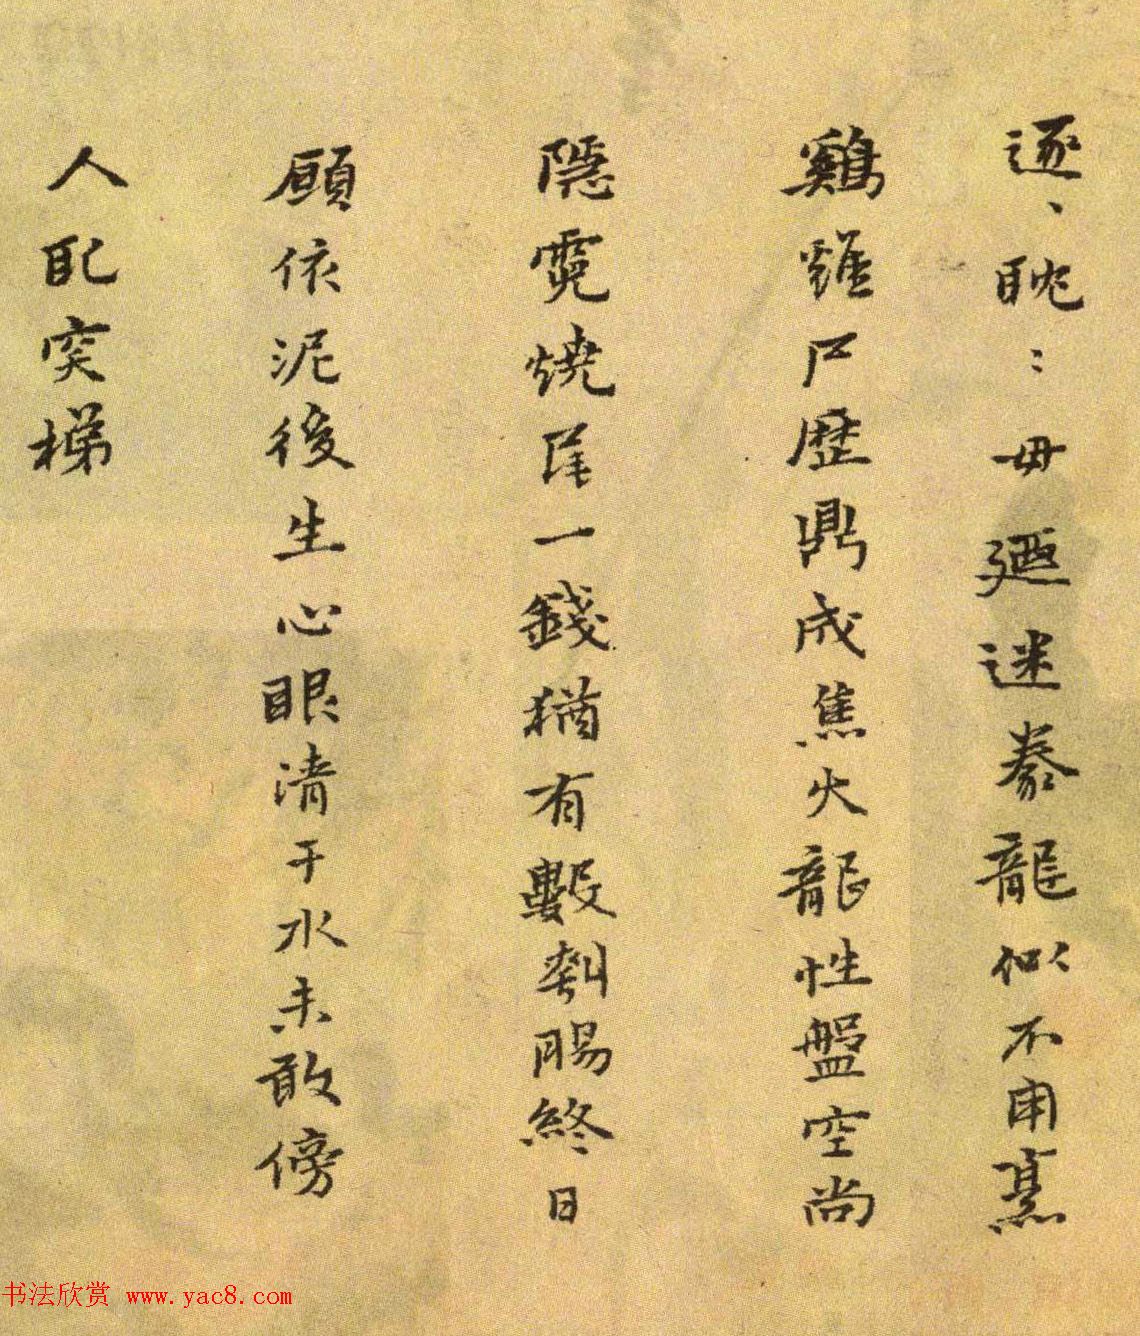 逐、眈：毋迺迷豢龍似不用熹
鷄雖尸歷鼎成焦火龍性盤空尚
隱霓燒尾一錢猶有數刲腸終日
顧依泥後生心眼清于水未敢傍
人配突梯
书法欣赏 www.yac8.com